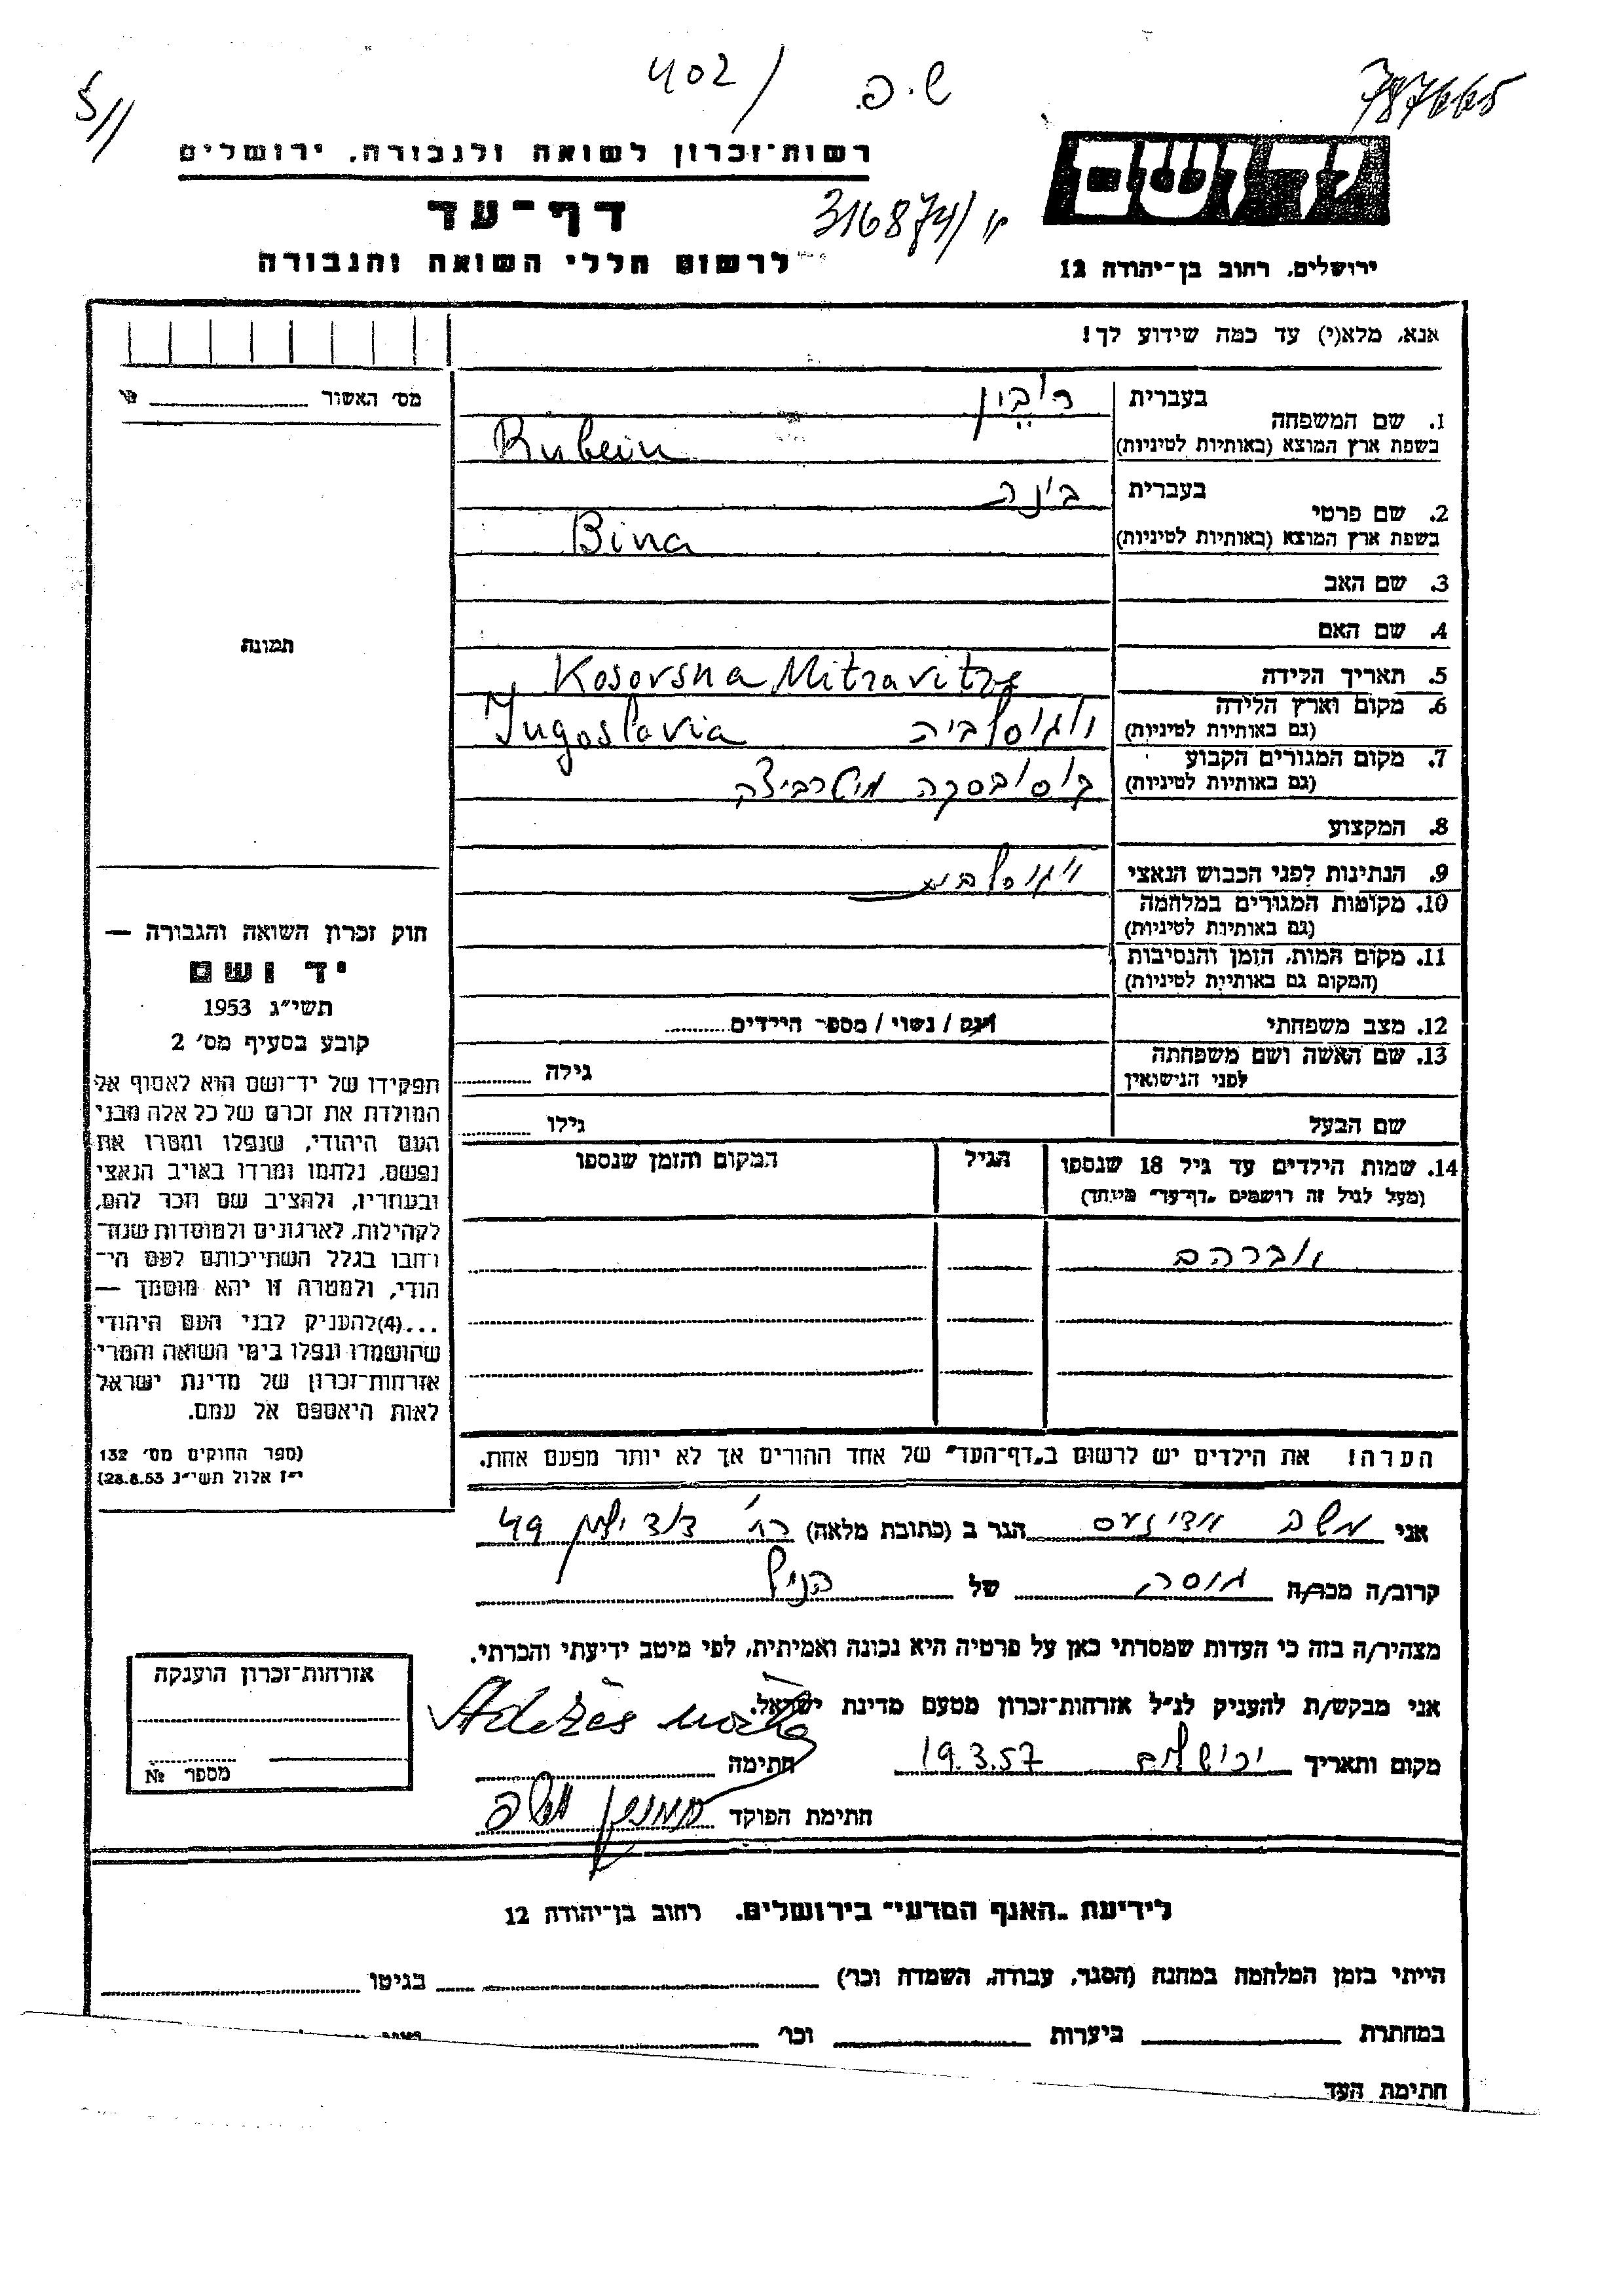 402/
ש.פ.
787665
5//
רשות־זכרון לשואה ולגבורה, ירושלים
ידושם
דף־עד
316874/
לרשום חללי השואה והגבורה
ירושלים, רחוב בן־יהודה 12
אנא, מלא(י) עד כמה שידוע לך!
מס׳ האשור
1. שם המשפחה
בעברית
רובין
בשפת ארץ המוצא (באותיות לטיניות)
Rubein
2. שם פרטי
בעברית
בינה
בשפת ארץ המוצא (באותיות לטיניות)
Bina
3. שם האב
4. שם האם
תמונה
5. תאריך הלידה
Kosovska Mitravitza
6. מקום וארץ הלידה
(גם באותיות לטיניות)
יוגוסלביה Yugoslavia
7. מקום המגורים הקבוע
(גם באותיות לטיניות)
קוסובסקה מיטרביצה
8. המקצוע
9. הנתינות לפני הכבוש הנאצי
יוגוסלבית
10. מקומות המגורים במלחמה
(גם באותיות לטיניות)
11. מקום המות, הזמן והנסיבות
(המקום גם באותיות לטיניות)
12. מצב משפחתי
רוק / נשוי / מספר הילדים
13. שם האשה ושם משפחתה
לפני הנישואין
גילה
שם הבעל
גילו
חוק זכרון השואה והגבורה —
יד ושם
תשי״ג 1953
קובע בסעיף מס׳ 2
תפקידו של יד־ושם הוא לאסוף אל
המולדת את זכרם של כל אלה מבני
העם היהודי, שנפלו ומסרו את
נפשם, נלחמו ומרדו באויב הנאצי
ובעוזריו, ולהציב שם וזכר להם,
לקהילות, לארגונים ולמוסדות שנח־
רחבו בגלל השתייכותם לעם הי־
הודי, ולמטרה זו יהא מוסמך —
...(4) להעניק לבני העם היהודי
שהושמדו ונפלו בימי השואה והמרי
אזרחות־זכרון של מדינת ישראל
לאות היאספם אל עמם.
(ספר החוקים מס׳ 132
י״ז אלול תשי״ג 28.8.53)
14. שמות הילדים עד גיל 18 שנספו
(מעל לגיל זה רושמים „דף־עד״ מיוחד)
הגיל
המקום והזמן שנספו
אברהם
הערה! את הילדים יש לרשום ב„דף־העד״ של אחד ההורים אך לא יותר מפעם אחת.
אני משה אדיזעס הגר ב (כתובת מלאה) רח׳ דוד ילין 49
קרוב/ה מכר/ה גיסה של הניל
מצהיר/ה בזה כי העדות שמסרתי כאן על פרטיה היא נכונה ואמיתית, לפי מיטב ידיעתי והכרתי.
אני מבקש/ת להעניק לנ״ל אזרחות־זכרון מטעם מדינת ישראל.
מקום ותאריך ירושלים 19.3.57 חתימה
חתימת הפוקד
אזרחות־זכרון הוענקה
מספר №
לידיעת „האגף המדעי״ בירושלים, רחוב בן־יהודה 12
הייתי בזמן המלחמה במחנה (הסגר, עבודה, השמדה וכו׳) בגיטו
במחתרת ביערות וכו׳
חתימת העד